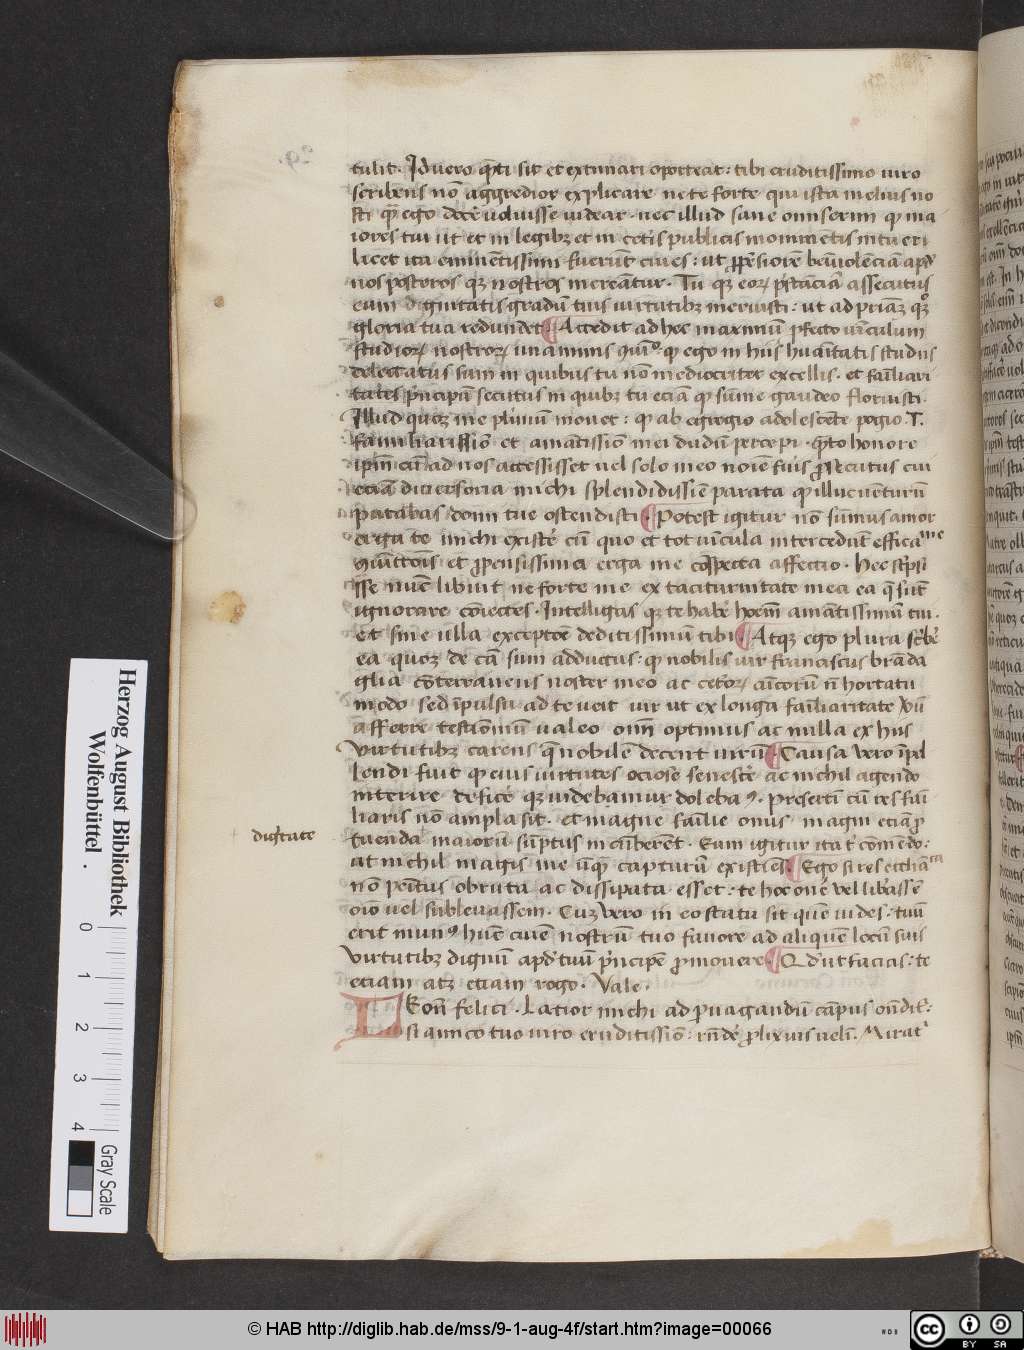 tulit. Id vero q̄nti sit et extimari oporteat: tibi eruditissimo uiro
scribens nō aggredior explicare ne te forte qui ista melius no
sti q̄ ego docē uoluisse uidear. nec illud sane omiserim q̨ ma
iores tui ut et in legibꝫ et in cet̄is publicis monimētis intueri
licet ita eminētissimi fuerūt ciues: ut ꝓpēsiorē beniuolēciā apd̓
nos posteros qꝫ nostros mereātur. Tu qꝫ eoꝝ p̄stāciā assecutus
eum dignitatis gradū tuis uirtutibꝫ meruisti: ut ad priāꝫ qꝫ
gloria tua redundet Accedit ad hec maximū ꝓfecto uīculum
studioꝝ nostroꝝ unanimis q̨ ego in hiis hūaītatis studiis
delectatus sum in quibus tu nō mediocriter excellis. et familiari
tates p̄ncipū secutus in quibꝫ tu eciā q̨ sūme gaudeo floruisti.
Illud quoqꝫ me plimū mouet: q̨ ab egregio adolescēte pogio. T.
familiarissīo et amātissīo mei dudū percepi. q̄nto honore
ipm̄ cū ad nos accessisset uel solo meo noīe fuis ꝓsecutus cui
eciā diuersoria michi splendidissīe parata q̨ illuc uēturū
putabas domi tue ostendisti. Potest igitur nō sūmus amor
erga te michi existē cū quo et tot uīcula intercedūt efficā
et ꝓpensissima erga me cōspecta affectio. Hec sc̄psi
sse nūc libuit ne forte me ex taciturnitate mea ea q̄ sūt
ignorare cōiectes. Intelligas qꝫ te habē hoīem amātissimū tui.
et sine ulla exceptōe deditissimū tibi Atqꝫ ego plura sc̄bē
ea quoqꝫ de cā sum adductus: q̨ nobilis uir franciscus brāda
glia cōterraneus noster meo ac cetoꝝ amicorū nō hortatu
modo sed īpulsu ad te ueit uir ut ex longa familiaritate
afferre testiōniū ualeo omī optimus ac nulla ex hiis
virtutibꝫ carens q̄ nobilē decent uirū Causa vero īpel
lendi fuit q̨ eius uirtutes ociose senescē ac nichil agendo
interire deficē qꝫ uidebamur doleba⁹. presertī cū res fāi
liaris nō ampla sit. et magne fāilie onus magni etiā ꝓ
tuenda maiorū sūptus incūberēt. Eum igitur ita t̓ cōmēdo:
dig̓tate
at nichil magis me ūqꝫ capturū existīēs. Ego si res
nō pēitus obruta ac dissipata esset: te hoc onē vel libassē
oīo uel subleuassem. Cuꝫ vero in eo statu sit quē uides: tuū
erit mun⁹ hūc ciuē nostrū tuo fauore ad aliquē locū suis
virtutibꝫ dignū apd̓ tuū p̄ncipē ꝓmouere. Qd̓ ut facias: te
etiam atqꝫ etiam rogo. Vale.
Leon̄ felici. Latior michi ad ꝑuagandū cāpus
si amico tuo uiro eruditissīo: rn̄dē ꝓlixius uelī. Mirat̓
Herzog August Bibliothek
Wolfenbüttel
0 1 2 3 4
Gray Scale
© HAB http://diglib.hab.de/mss/9-1-aug-4f/start.htm?image=00066
WDB
cc BY SA